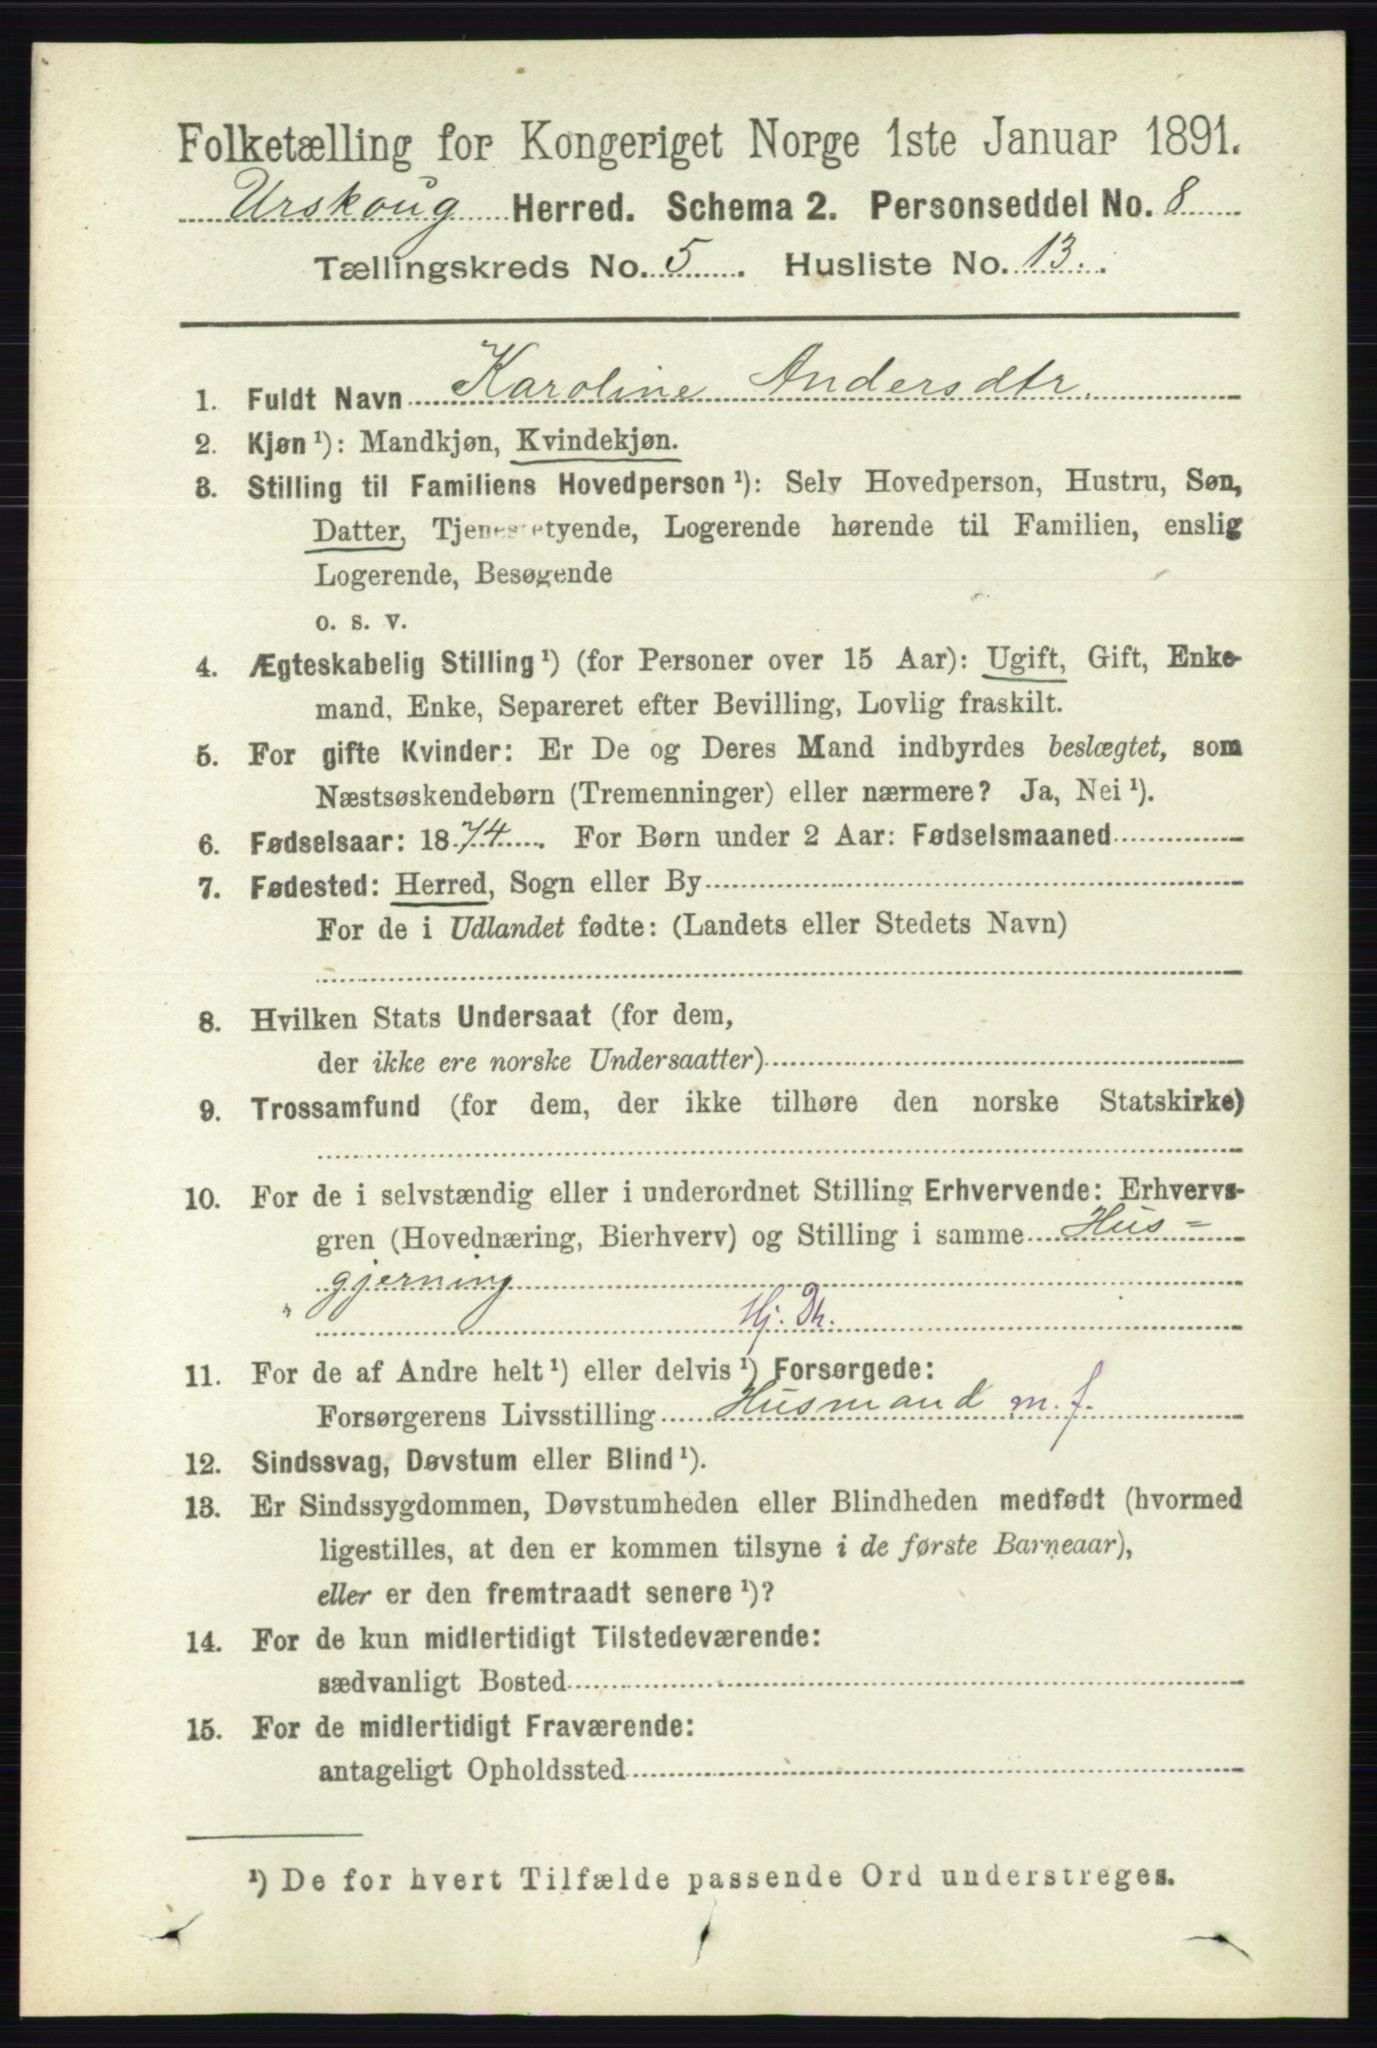 Folketælling for Kongeriget Norge 1ste Januar 1891.
Urskoug Herred. Schema 2. Personseddel No. 8
Tællingskreds No. 5. Husliste No. 13.
1. Fuldt Navn Karoline Andersdtr.
2. Kjøn ¹): Mandkjøn, Kvindekjøn.
3. Stilling til Familiens Hovedperson ¹): Selv Hovedperson, Hustru, Søn,
Datter, Tjenestetyende, Logerende hørende til Familien, enslig
Logerende, Besøgende
o. s. v.
4. Ægteskabelig Stilling ¹) (for Personer over 15 Aar): Ugift, Gift, Enke-
mand, Enke, Separeret efter Bevilling, Lovlig fraskilt.
5. For gifte Kvinder: Er De og Deres Mand indbyrdes beslægtet, som
Næstsøskendebørn (Tremenninger) eller nærmere? Ja, Nei ¹).
6. Fødselsaar: 1874. For Børn under 2 Aar: Fødselsmaaned
7. Fødested: Herred, Sogn eller By
For de i Udlandet fødte: (Landets eller Stedets Navn)
8. Hvilken Stats Undersaat (for dem,
der ikke ere norske Undersaatter)
9. Trossamfund (for dem, der ikke tilhøre den norske Statskirke)
10. For de i selvstændig eller i underordnet Stilling Erhvervende: Erhvervs-
gren (Hovednæring, Bierhverv) og Stilling i samme Hus=
gjerning
Hj. Dh.
11. For de af Andre helt ¹) eller delvis ¹) Forsørgede:
Forsørgerens Livsstilling Husmand m. f.
12. Sindssvag, Døvstum eller Blind ¹).
13. Er Sindssygdommen, Døvstumheden eller Blindheden medfødt (hvormed
ligestilles, at den er kommen tilsyne i de første Barneaar),
eller er den fremtraadt senere ¹)?
14. For de kun midlertidigt Tilstedeværende:
sædvanligt Bosted
15. For de midlertidigt Fraværende:
antageligt Opholdssted
¹) De for hvert Tilfælde passende Ord understreges.